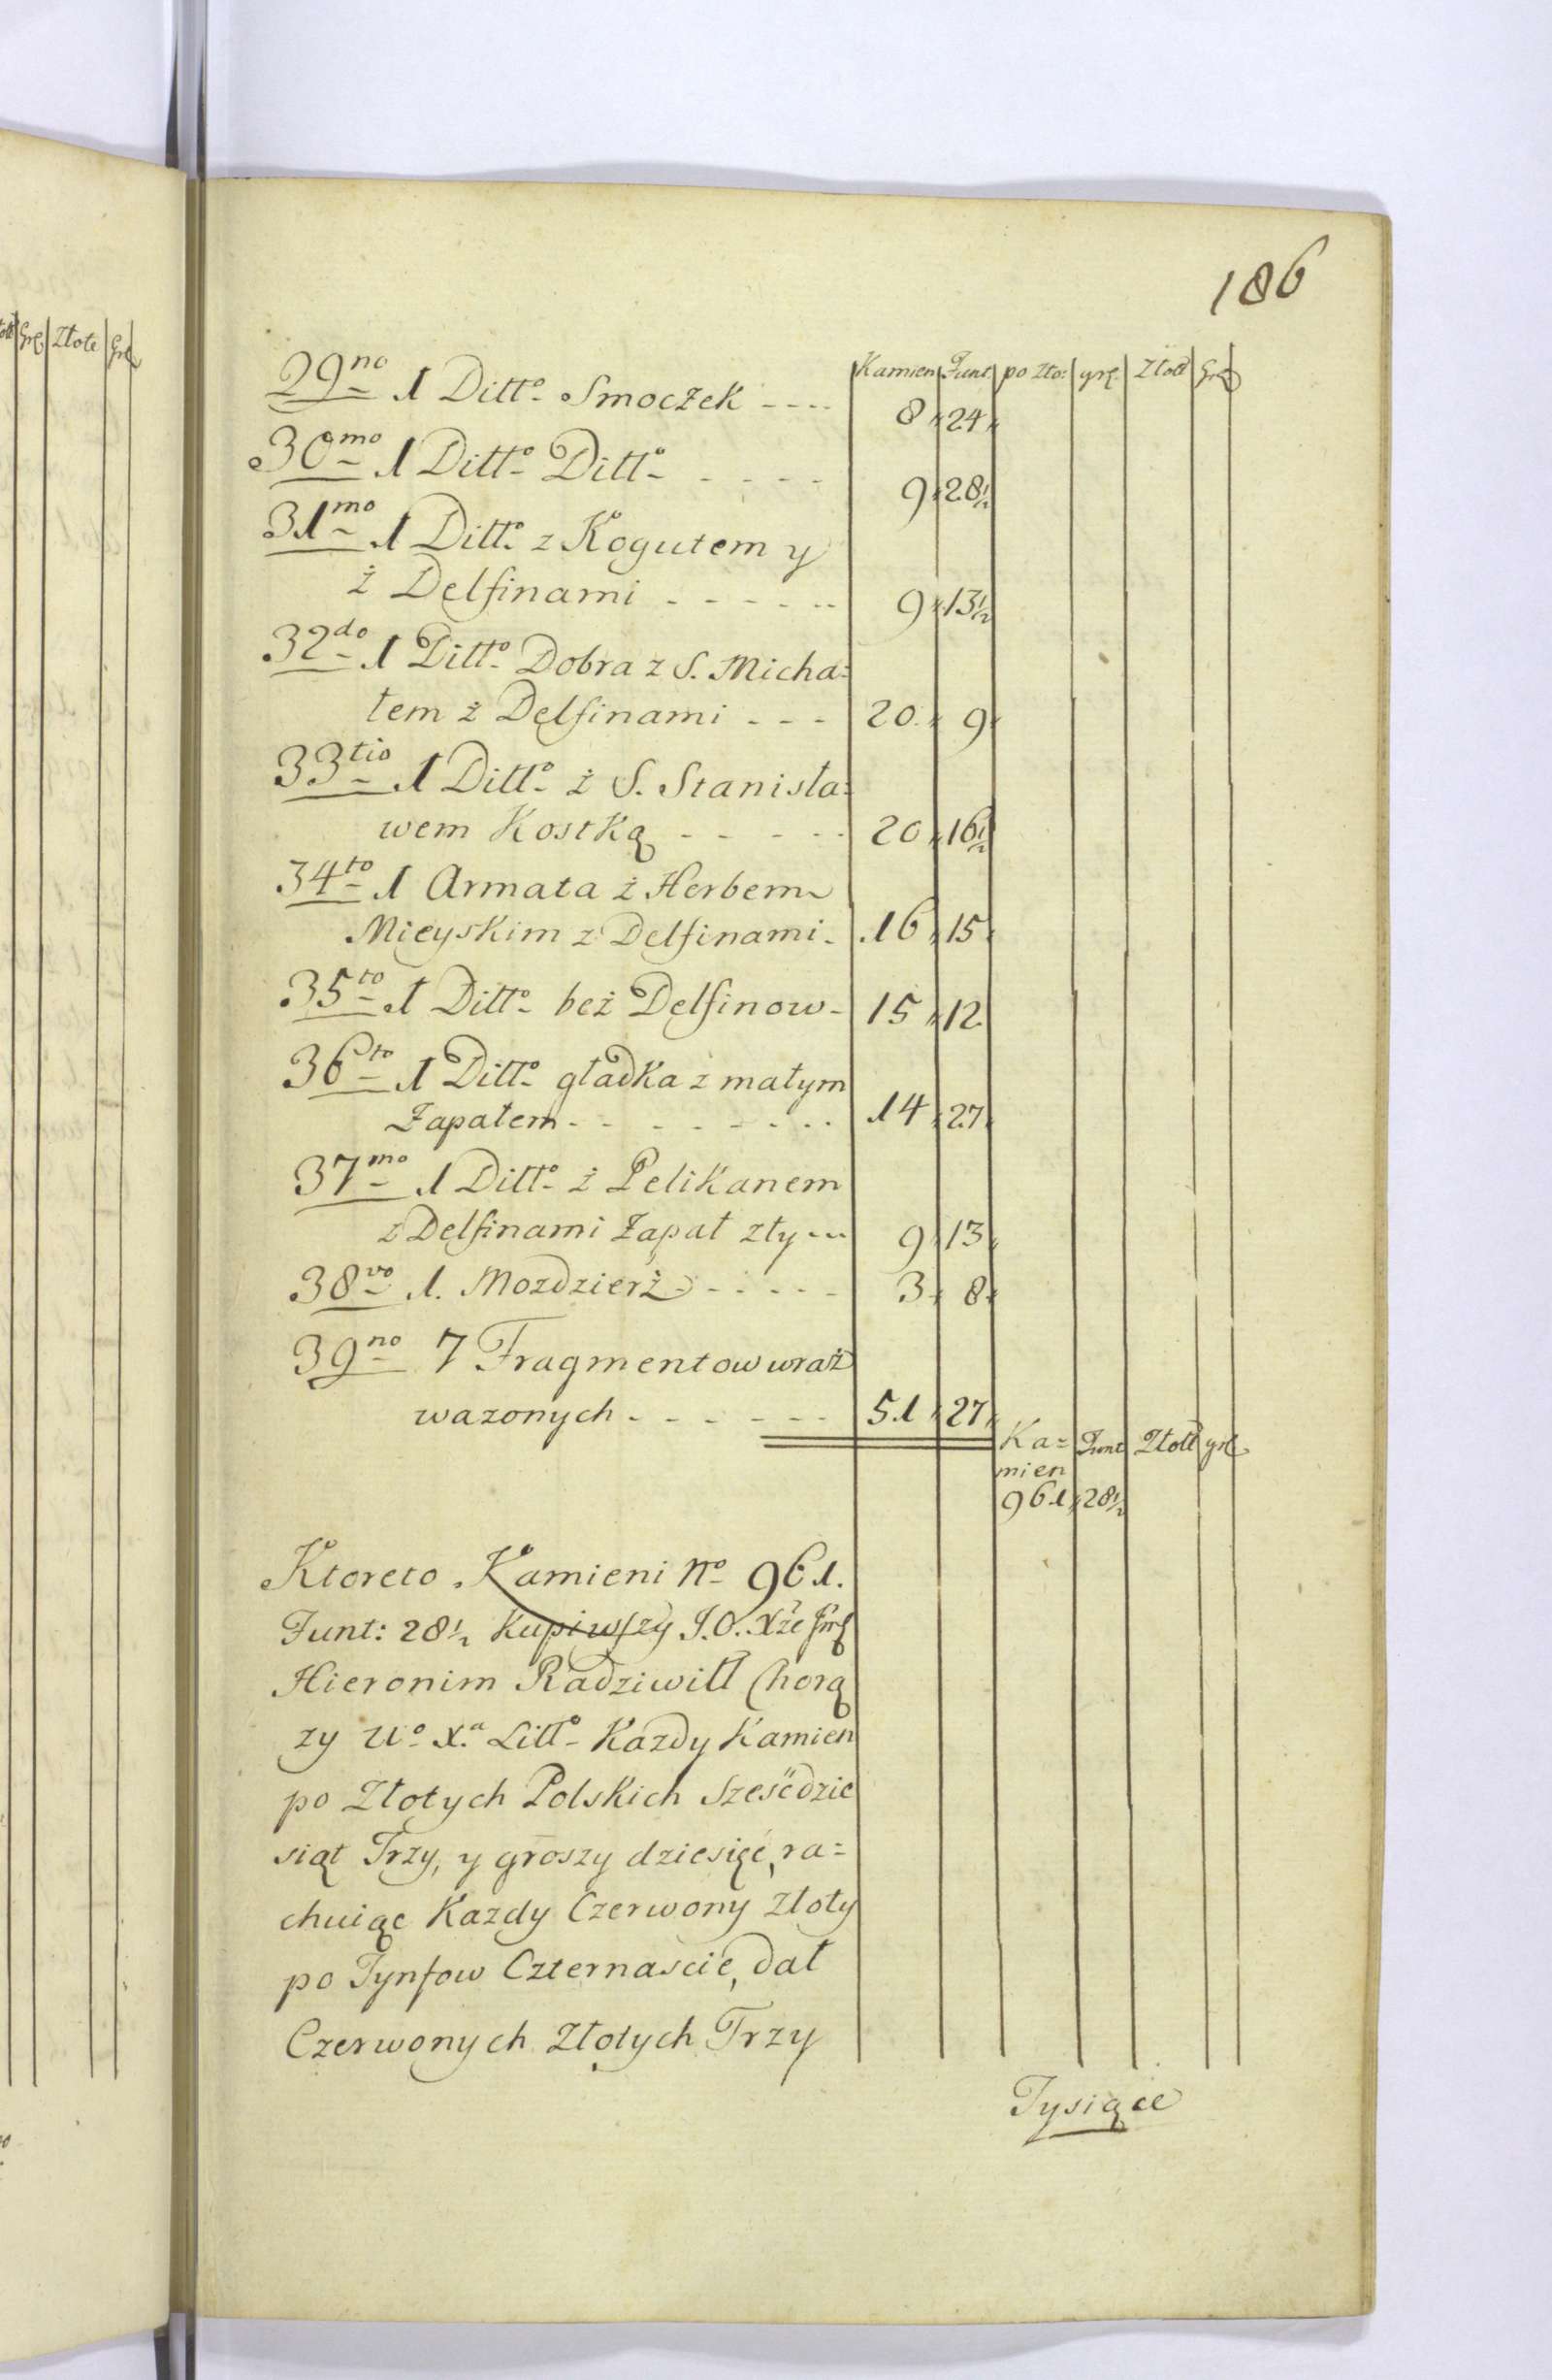 186
Złote Grl
Kamien Funt po Zło: grl. Złott Grl
29no 1 Ditto Smoczek ---- 8 24
30mo 1 Ditto Ditto - - - - 9 28½
31mo 1 Ditto z Kogutem y
ż Delfinami - - - - - - 9 13½
32do 1 Ditto Dobra z S. Micha=
łem ż Delfinami - - - 20 9
33tio 1 Ditto ż S. Stanisła=
wem Kostką - - - - - 20 16½
34to 1 Armata ż Herbem
Mieyskim z Delfinami - 16 15
35to 1 Ditto beż Delfinow - 15 12
36to 1 Ditto gładka z małym
Zapałem - - - - - - - 14 27
37mo 1 Ditto ż Pelikanem
z Delfinami Zapał zły --- 9 13
38vo 1. Mozdzierż - - - - - 3 8
39no 7 Fragmentow wraż
wazonych - - - - - - 51 27
Ka= Funt Złott grl
mien
961 28½
Ktoreto Kamieni No 961.
Funt: 28½ Kupiwszy J.O. Xże Jmć
Hieronim Radziwiłł Chorą
zy Uo X.a Litto Kazdy Kamien
po Złotych Polskich Sześćdzie
siąt Trzy, y groszy dziesięć, ra=
chuiąc Kazdy Czerwony Złoty
po Tynfow Czternascie, dał
Czerwonych Złotych Trzy
Tysiące